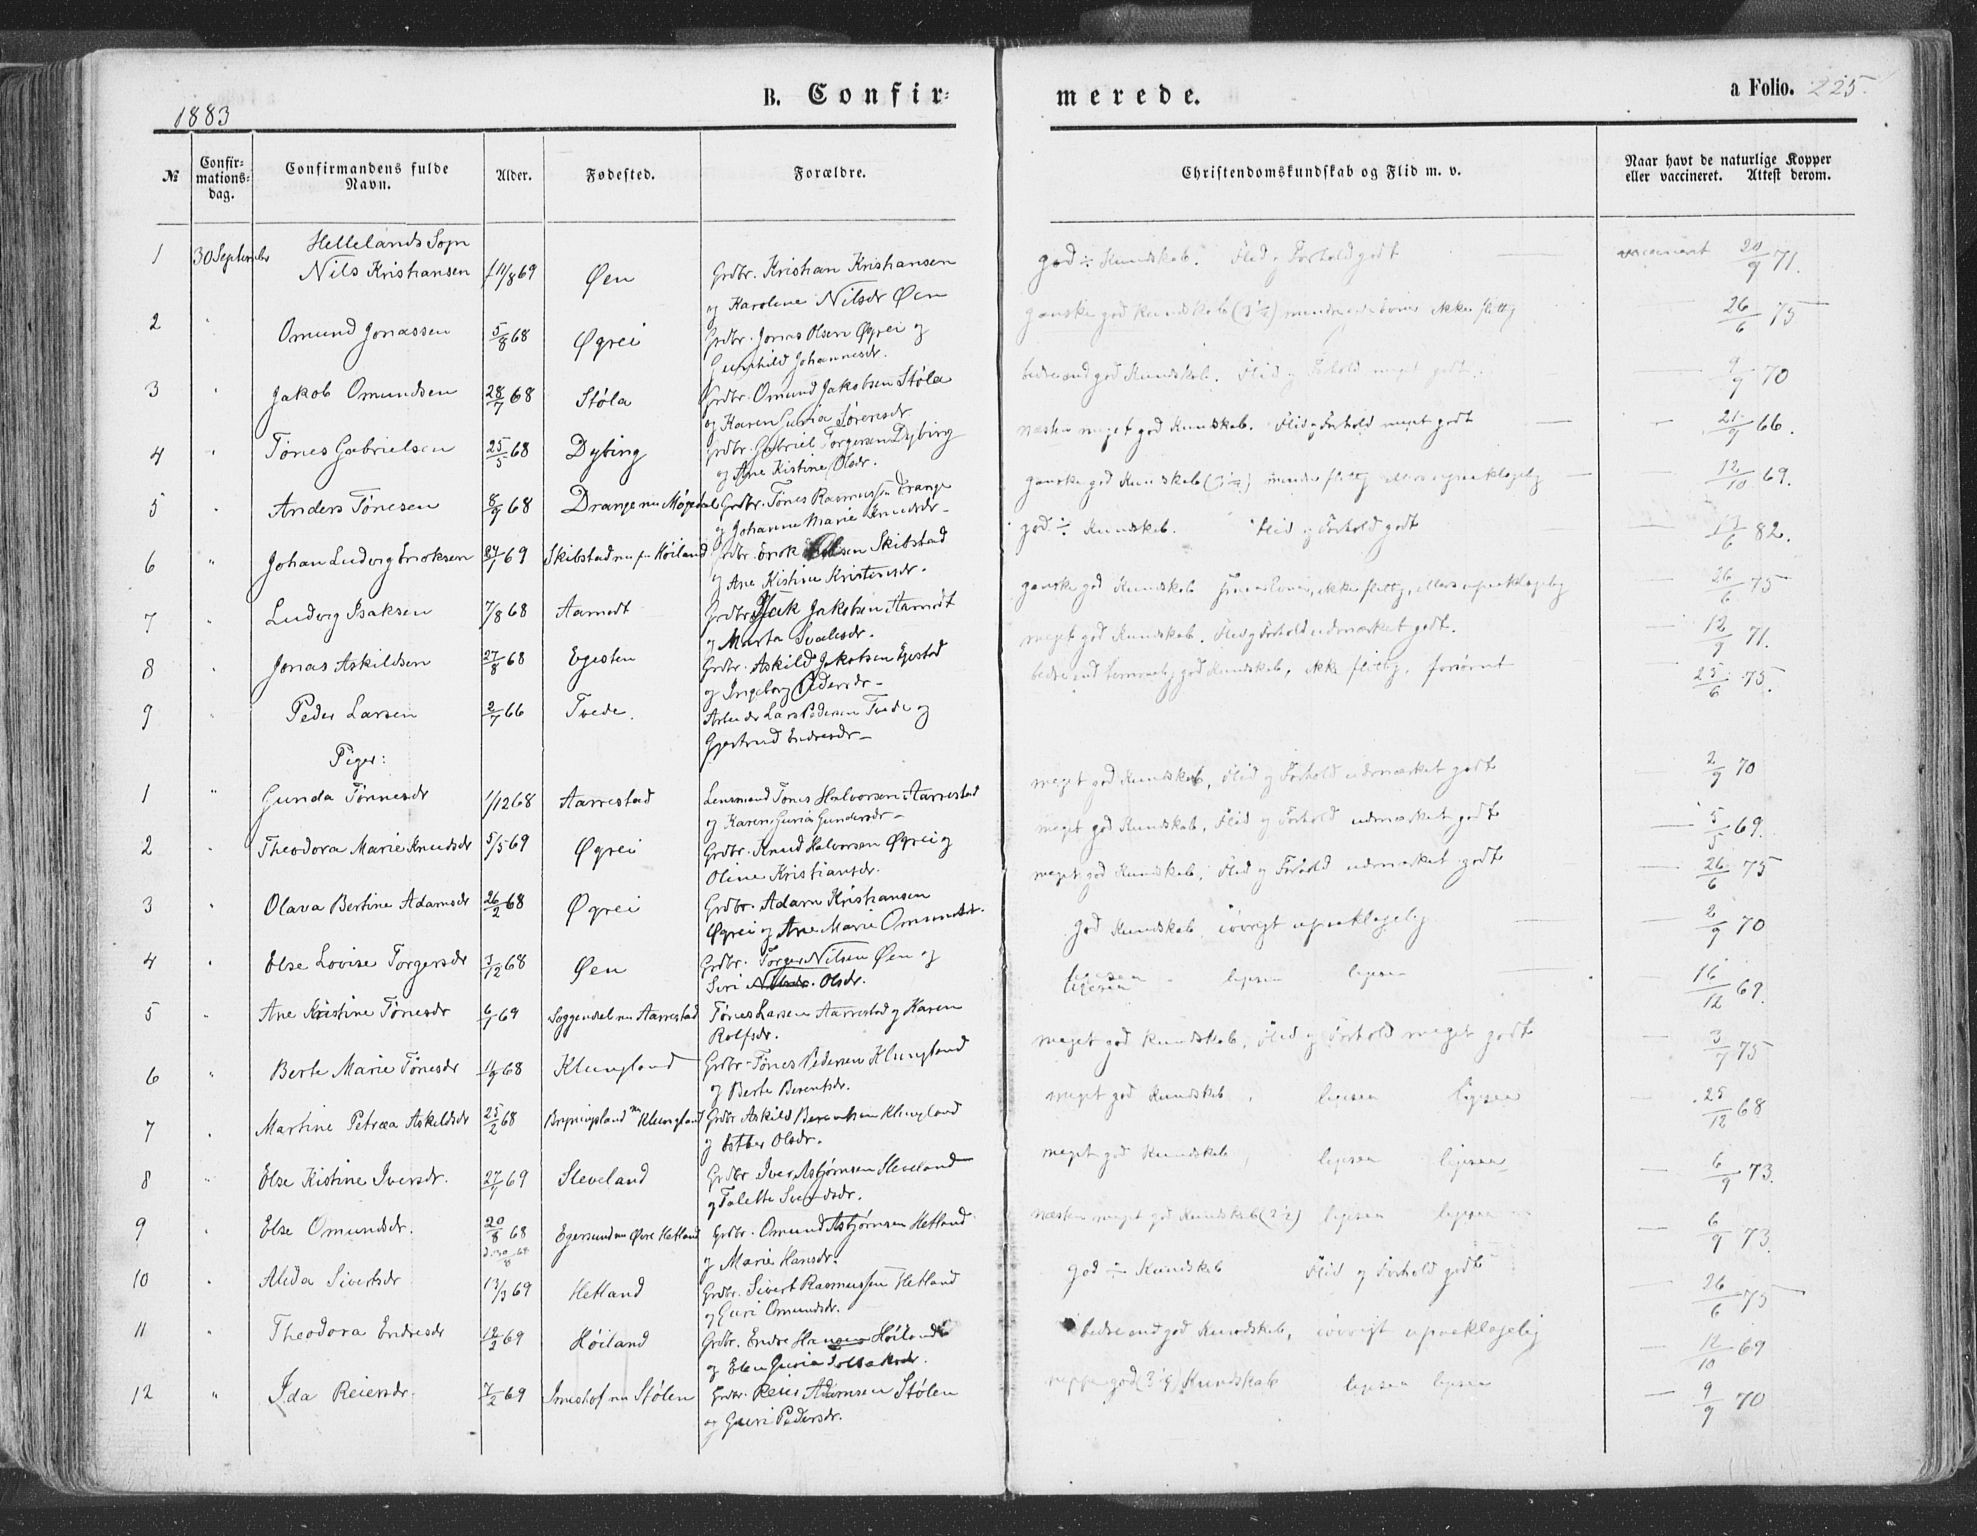 1883
B. Confir-
merede.
a Folio. 225.
№
Confir-
mations-
dag.
Confirmandens fulde
Navn.
Alder.
Fødested.
Forældre.
Christendomskundskab og Flid m. v.
Naar havt de naturlige Kopper
eller vaccineret. Attest derom.
Hellelands Sogn
1 30 September Nils Kristiansen 11/8 69 Øen Grdbr. Kristian Kristiansen
og Karoline Nilsdr Øen
god ÷ Kundskab. Flid og Forhold godt vaccinert 20/9 71.
2 " Omund Jonassen 5/8 68 Øgrei Grdbr. Jonas Olsen Øgrei og
Gunhild Johannesdr.
ganske god Kundskab (3 1/2) ikke flittig 26/6 75
3 " Jakob Omundsen 28/7 68 Støla Grdbr. Omund Jakobsen Støla
og Karen Guria Sørensdr
bedre end god Kundskab. Flid og Forhold meget godt. 9/9 70
4 " Tønes Gabrielsen 25/5 68 Dybing Grdbr. Gabriel Torgersen Dybing
og Ane Kistine Olsdr.
næsten meget god Kundskab. Flid og Forhold meget godt 21/9 66.
5 " Anders Tønesen 8/9 68 Drange nu Møgedal Grdbr. Tønes Rasmussen Drange
og Johanne Marie Knudsdr
ganske god Kundskab mindre flittig ellers upaaklagelig 12/10 69.
6 " Johan Ludvig Eriksen 27/1 69 Skibstad nu paa Høiland Grdbr. Erik Olsen Skibstad
og Ane Kistine Kristensdr.
god ÷ Kundskab. Flid og Forhold godt 13/6 82.
7 " Ludvig Isaksen 7/8 68 Aamodt Grdbr. Isak Jakobsen Aamodt
og Marta
ganske god Kundskab ikke flittig, ellers upaaklagelig 26/6 75
8 " Jonas Askildsen 27/8 68 Egesten Grdbr. Askild Jakobsen
og Ingeborg Pedersdr
meget god Kundskab. Flid og Forhold udmærket godt. 12/9 71.
9 " Peder Larsen 2/7 66 Tvede. Lars Pedersen Tvede og
Gjertrud Endresdr
bedre end temmelig god Kundskab, ikke flittig, 25/6 75.
Piger:
1 " Gunda Tønnesdr 1/12 68 Aarrestad Lensmand Tønes Halvorsen Aarrestad
og Karen Guria Gundersdr
meget god Kundskab, Flid og Forhold udmærket godt 2/9 70
2 " Theodora Marie Knudsdr 5/5 69 Øgrei Grdbr. Knud Halvorsen Øgrei og
Oline Kristiansdr.
meget god Kundskab, Flid og Forhold udmærket godt 5/5 69.
3 " Olava Bertine Adamsdr 26/2 68 Øgrei Grdbr. Adam Kristiansen
Øgrei og Ane Marie Omundsdr.
meget god Kundskab, Flid og Forhold udmærket godt 26/6 75
4 " Else Lovise Torgersdr 3/12 68 Øen Grdbr. Torger Nilsen Øen og
Siri Olsdr.
god Kundskab, iøvrigt upaaklagelig 2/9 70
5 " Ane Kristine Tønesdr 6/1 69 Soggendal nu Aarrestad Tønes Larsen Aarrestad og Karen
Rolfsdr.
ligesaa ligesaa ligesaa 16/12 69.
6 " Berte Marie Tønesdr 11/9 68 Klungland Grdbr. Tønes Pedersen Klungland
og Berte Berentsdr.
meget god Kundskab, Flid og Forhold meget godt 3/7 75
7 " Martine Petræa Askildsdr 25/2 68 nu Klungland Grdbr Askild Berentsen Klungland
og Esther Olsdr.
meget god Kundskab, ligesaa ligesaa 25/12 68
8 " Else Kistine Iversdr. 27/1 69 Sleveland Grdbr Iver Asbjørnsen Sleveland
og Talette Svendsdr.
meget god Kundskab, ligesaa ligesaa 6/9 73.
9 " Else Omundsdr. 20/8 68 Egersund nu Øvre Hetland Grdbr. Omund Asbjørnsen Hetland
og Marie Hansdr.
næsten meget god Kundskab (2 1/2) ligesaa ligesaa 6/9 73.
10 " Alida Sivertsdr 13/3 69 Hetland Grdbr. Sivert Rasmussen Hetland
og Guri Omundsdr.
god ÷ Kundskab Flid og Forhold godt 26/6 75
11 " Theodora Endresdr 12/2 69 Høiland Grdbr. Endre Hansen Høiland
og Elen Guria
bedre end god Kundskab, iøvrigt upaaklagelig 12/10 69
12 " Ida Reiersdr. 7/2 69 nu Stølen Grdbr. Reier Adamsen Stølen
og Guri Pedersdr.
neppe god (3 1/4) Kundskab ligesaa ligesaa 9/9 70